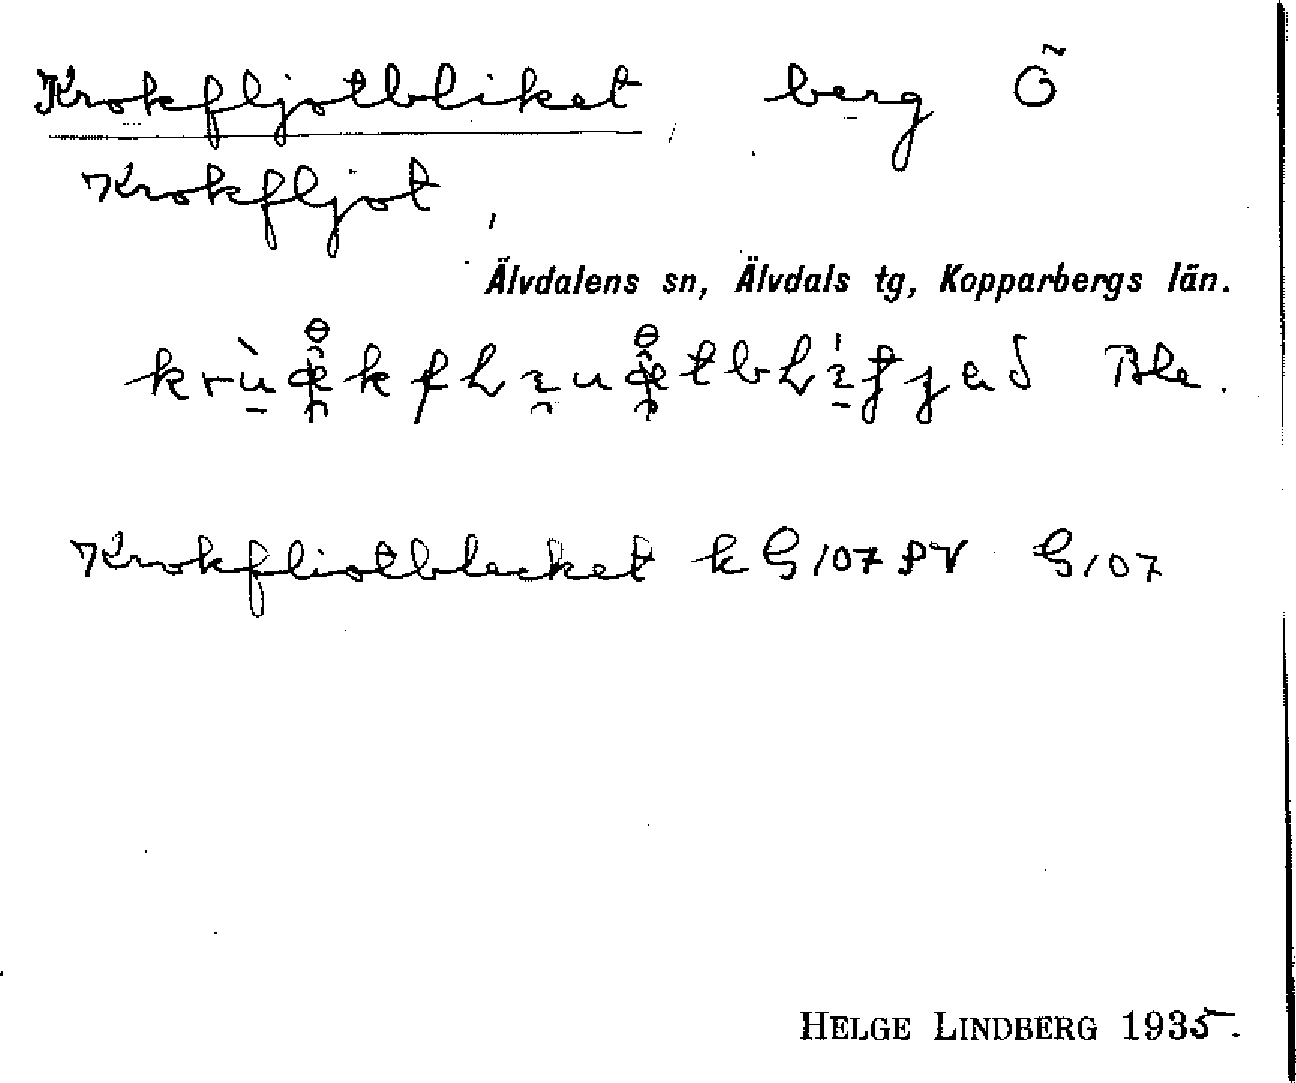 Krokfljotbliket berg Ö
Krokfljot
Älvdalens sn, Älvdals tg, Kopparbergs län.
Ble.
Krokfliotblecket k G107 SV G107
HELGE LINDBERG 1935.